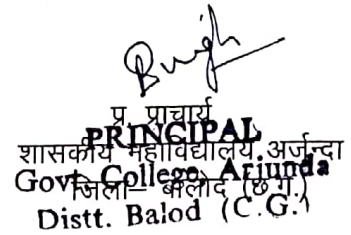 प्र. प्राचार्य
PRINCIPAL
शासकीय महाविद्यालय, अर्जुन्दा
Govt. College, Arjunda
जिला - बालोद (छ.ग.)
Distt. Balod (C.G.)